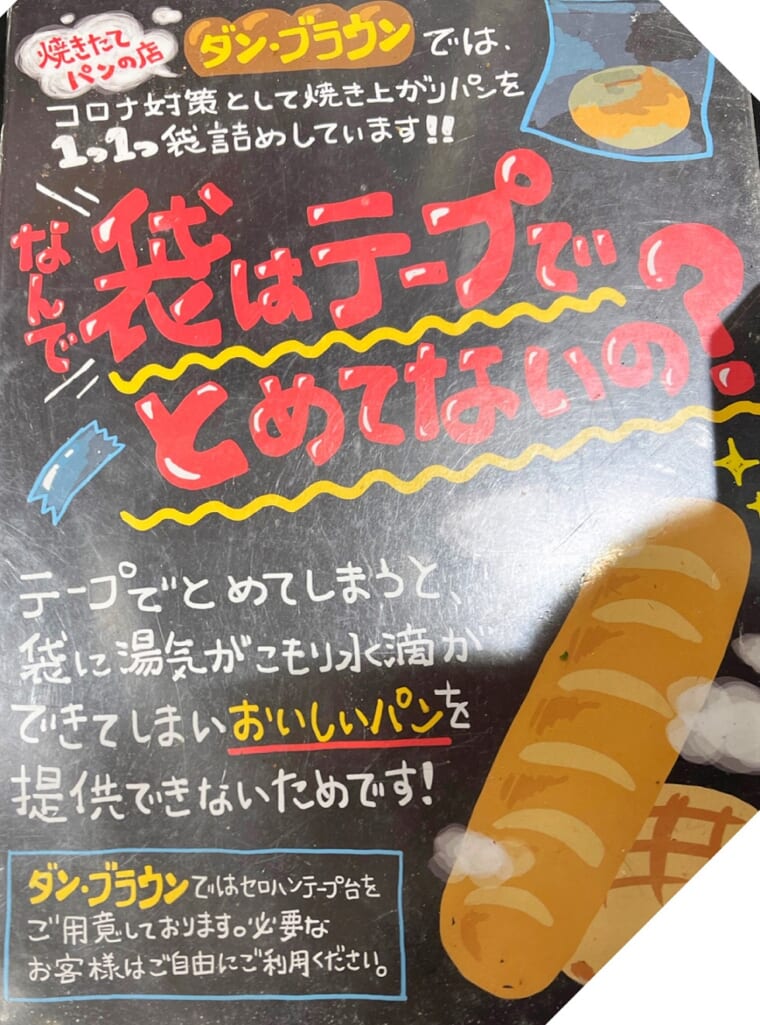 焼きたて
パンの店
ダン・ブラウンでは、
コロナ対策として焼き上がりパンを
1つ1つ袋詰めしています!!
なんで袋はテープで
とめてないの?
テープでとめてしまうと、
袋に湯気がこもり水滴が
できてしまいおいしいパンを
提供できないためです!
ダン・ブラウンではセロハンテープ台を
ご用意しております。必要な
お客様はご自由にご利用ください。